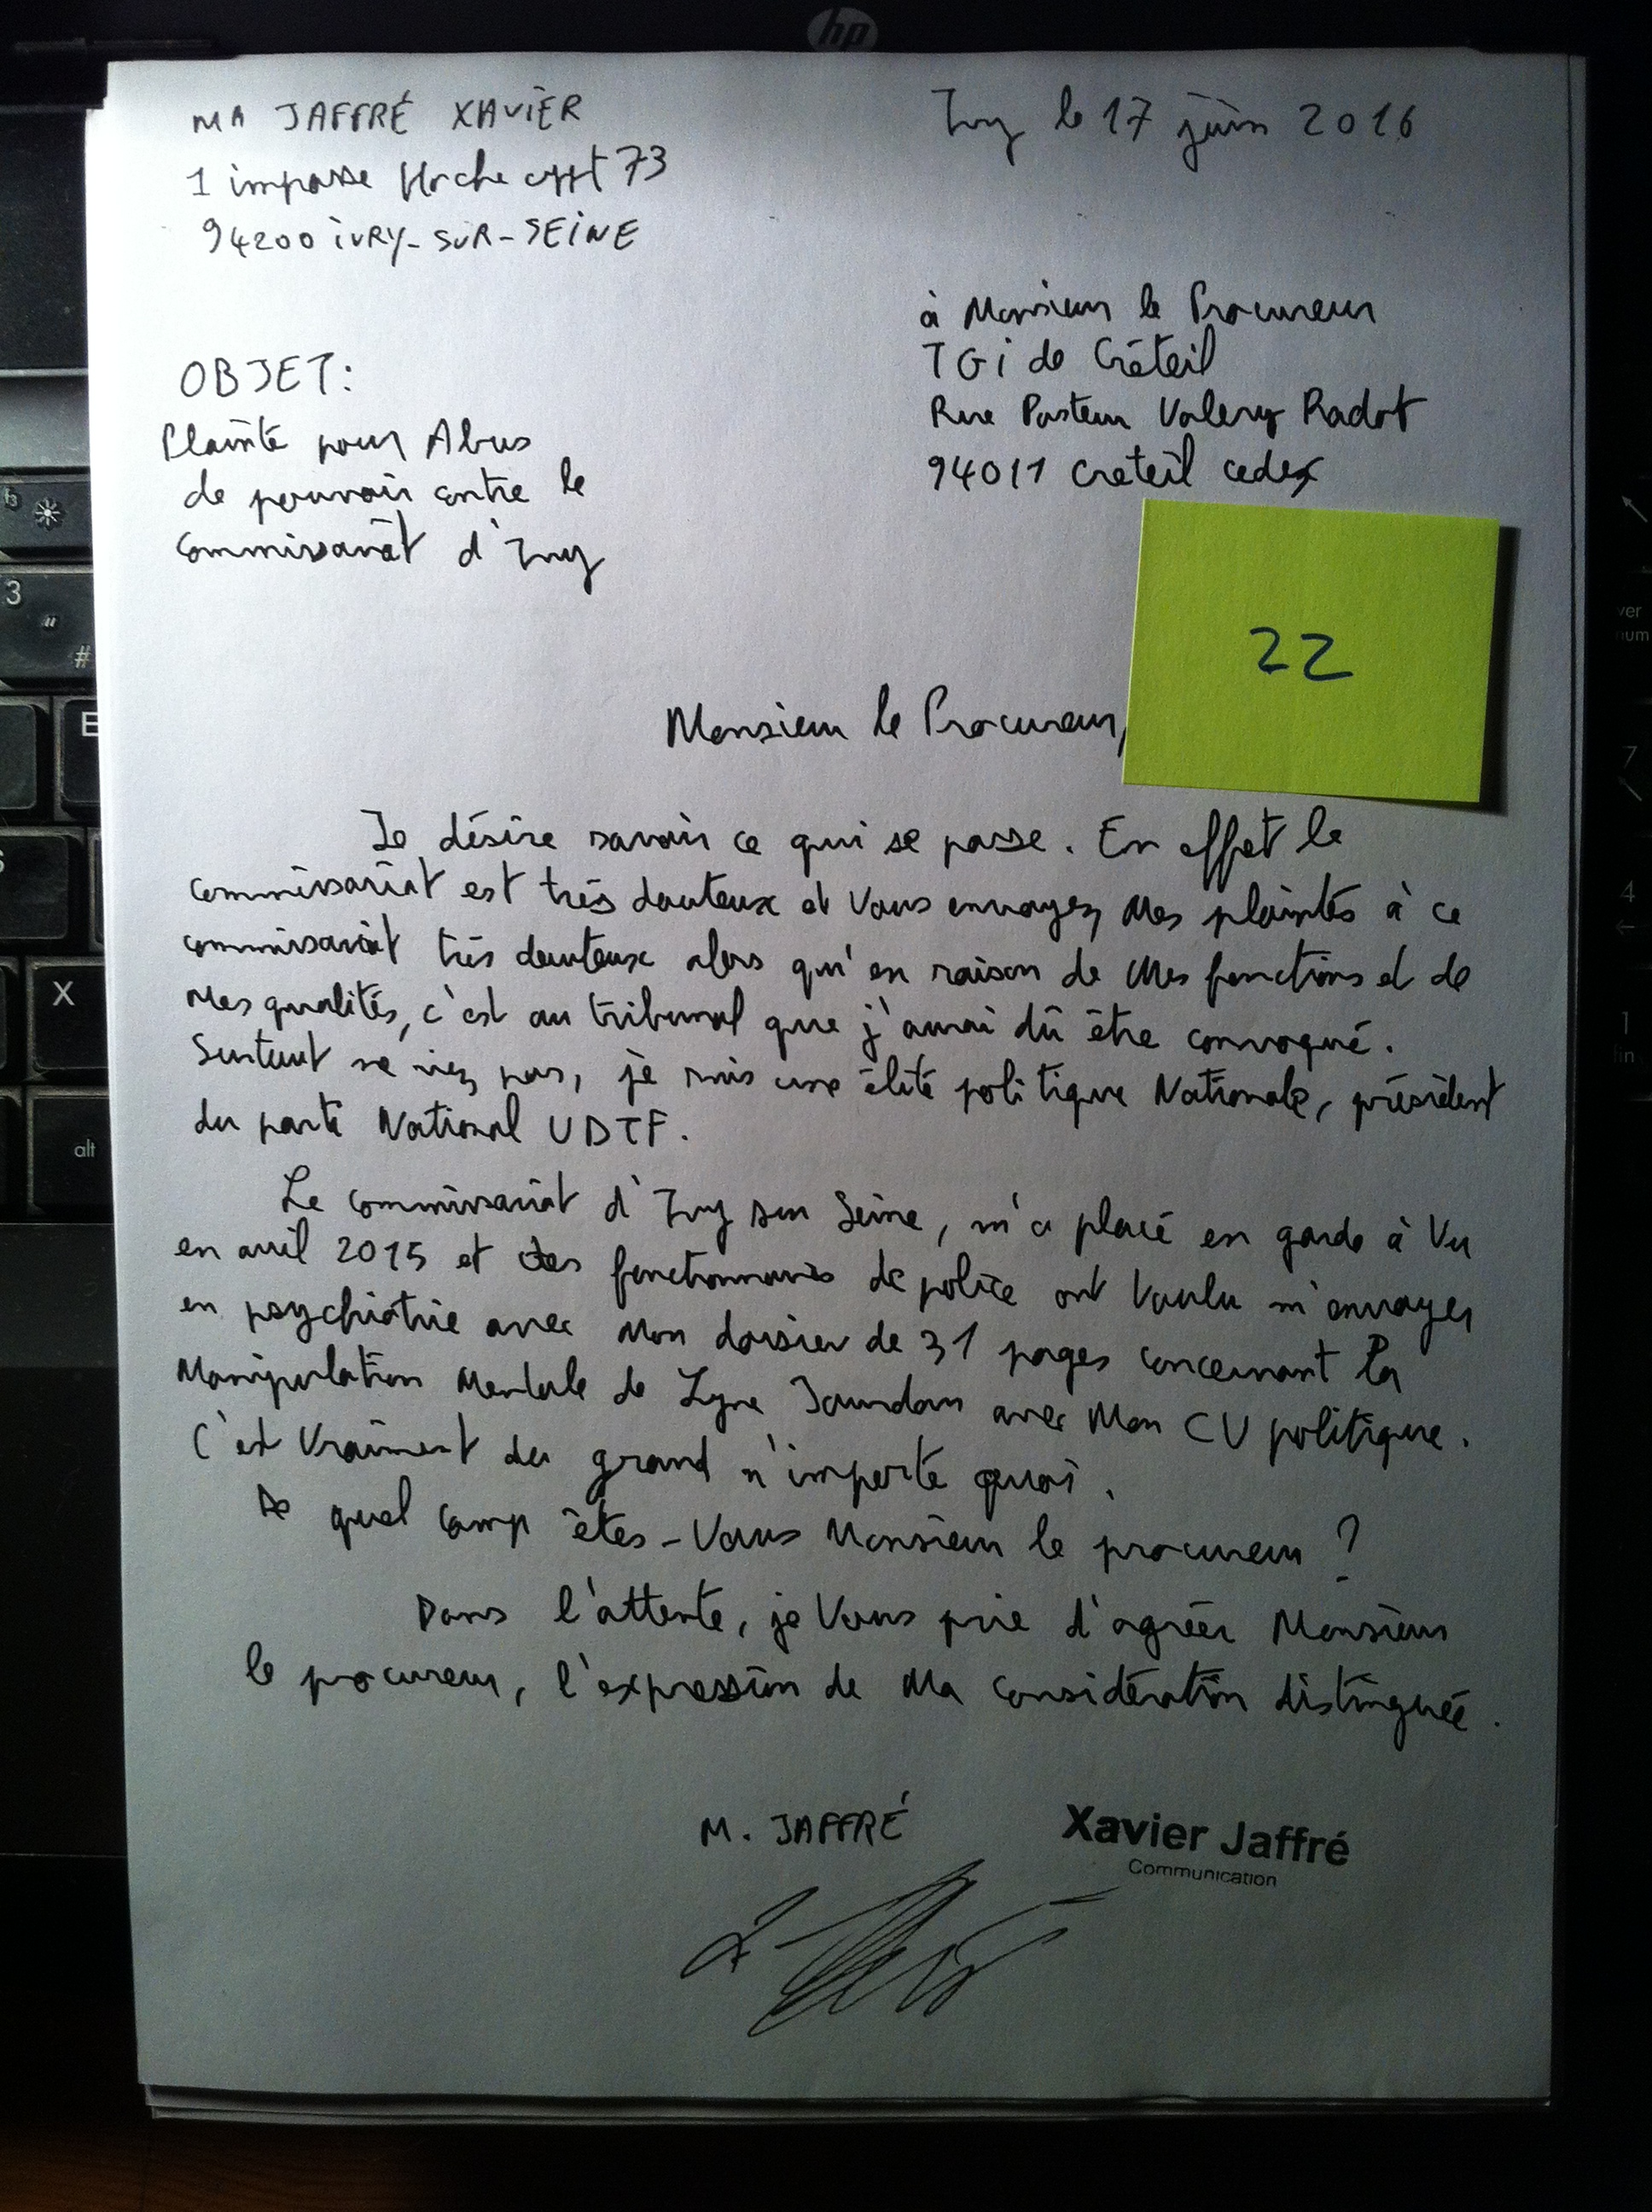 hp
MR JAFFRÉ XAVIER
Ivry le 17 juin 2016
1 impasse Hoche appt 73
94200 IVRY-SUR-SEINE
à Monsieur le Procureur
TGI de Créteil
Rue Pasteur Valery Radot
94011 Créteil cedex
OBJET:
Plainte pour Abus
de pouvoir contre le
Commissariat d'Ivry
22
Monsieur le Procureur,
Je désire savoir ce qui se passe. En effet le
commissariat est très douteux et vous envoyez mes plaintes à ce
commissariat très douteux alors qu'en raison de mes fonctions et de
mes qualités, c'est au tribunal que j'aurai dû être convoqué.
Surtout ne riez pas, je suis une élite politique Nationale, président
du parti National UDTF.
Le commissariat d'Ivry sur Seine, m'a placé en garde à vu
en avril 2015 et des fonctionnaires de police ont voulu m'envoyer
en psychiatrie avec mon dossier de 31 pages concernant la
Manipulation Mentale de Lyne Jourdan avec mon CV politique.
C'est vraiment du grand n'importe quoi.
De quel camp êtes-vous Monsieur le procureur ?
Dans l'attente, je vous prie d'agréer Monsieur
le procureur, l'expression de ma considération distinguée.
M. JAFFRÉ
Xavier Jaffré
Communication
3
"
#
E
X
alt
ver
num
7
4
1
fin